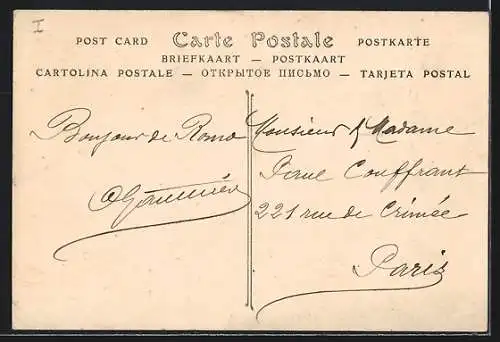 I
POST CARD Carte Postale POSTKARTE
BRIEFKAART — POSTKAART
CARTOLINA POSTALE — ОТКРЫТОЕ ПИСЬМО — TARJETA POSTAL
Bonjour de Rome
Monsieur & Madame
Paul Couffrant
221 rue de Crimée
Paris